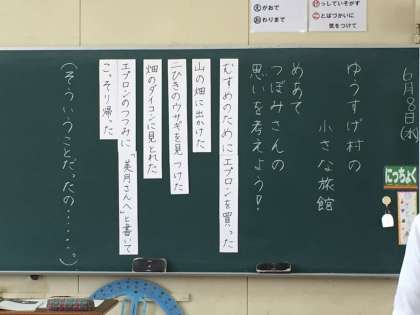 ６月８日(水)
ゆうすげ村の
小さな旅館
めあて
つぼみさんの
思いを考えよう！
むすめのためにエプロンを買った
山の畑に出かけた
二ひきのウサギを見つけた
畑のダイコンに見とれた
エプロンのつつみに「美月さんへ」と書いて
こっそり帰った
(そういうことだったの……。)
にっちょく
がおで
おわりまで
っしていそがず
とばづかいに
気をつけて